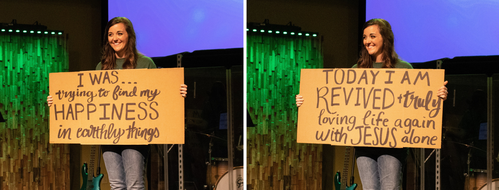 I WAS...
trying to find my
HAPPINESS
in earthly things
TODAY I AM
REVIVED + truly
loving life again
with JESUS alone